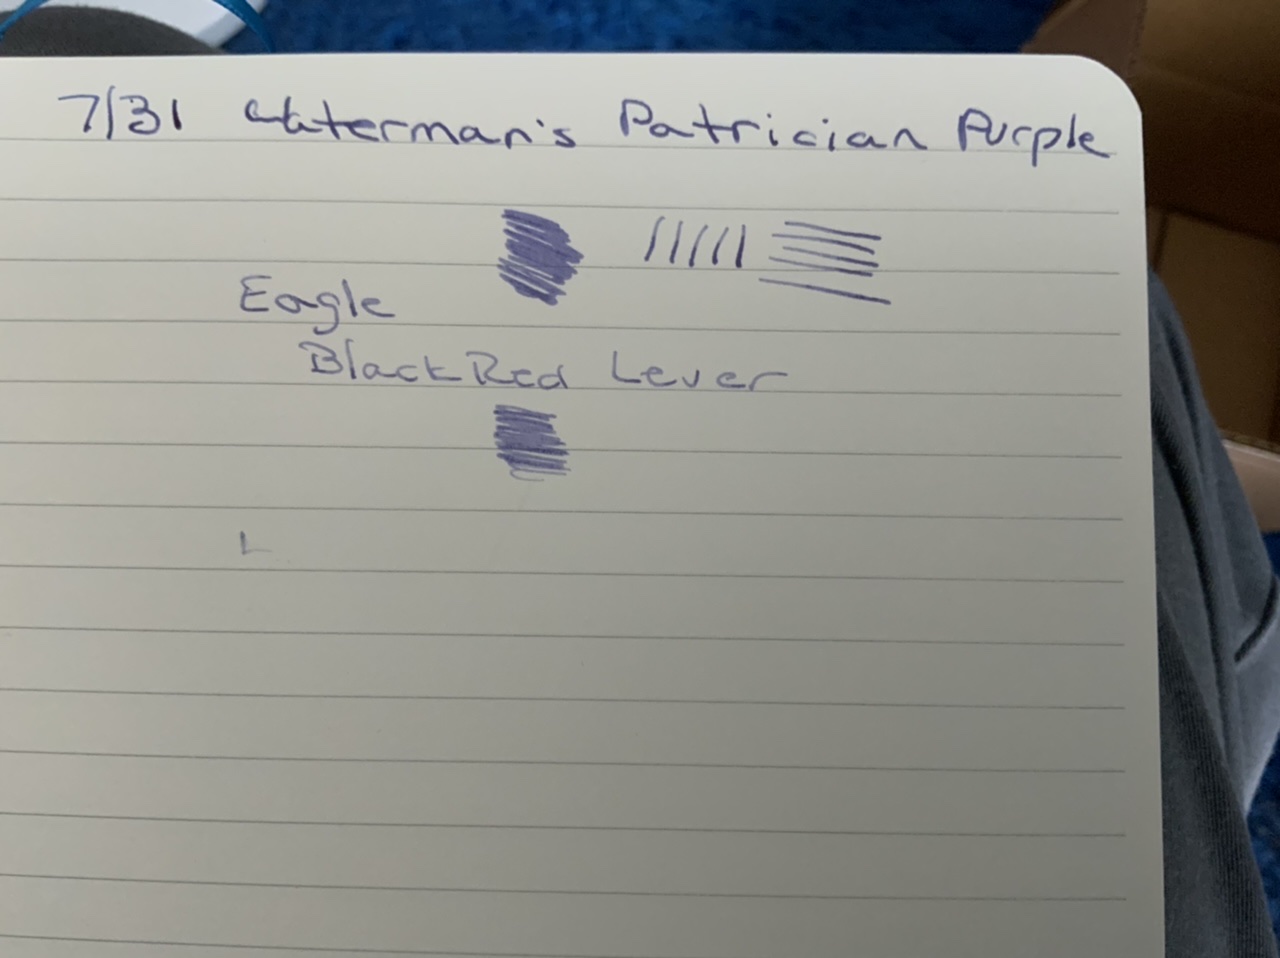 7/31 Waterman's Patrician Purple
Eagle
Black Red Lever
L